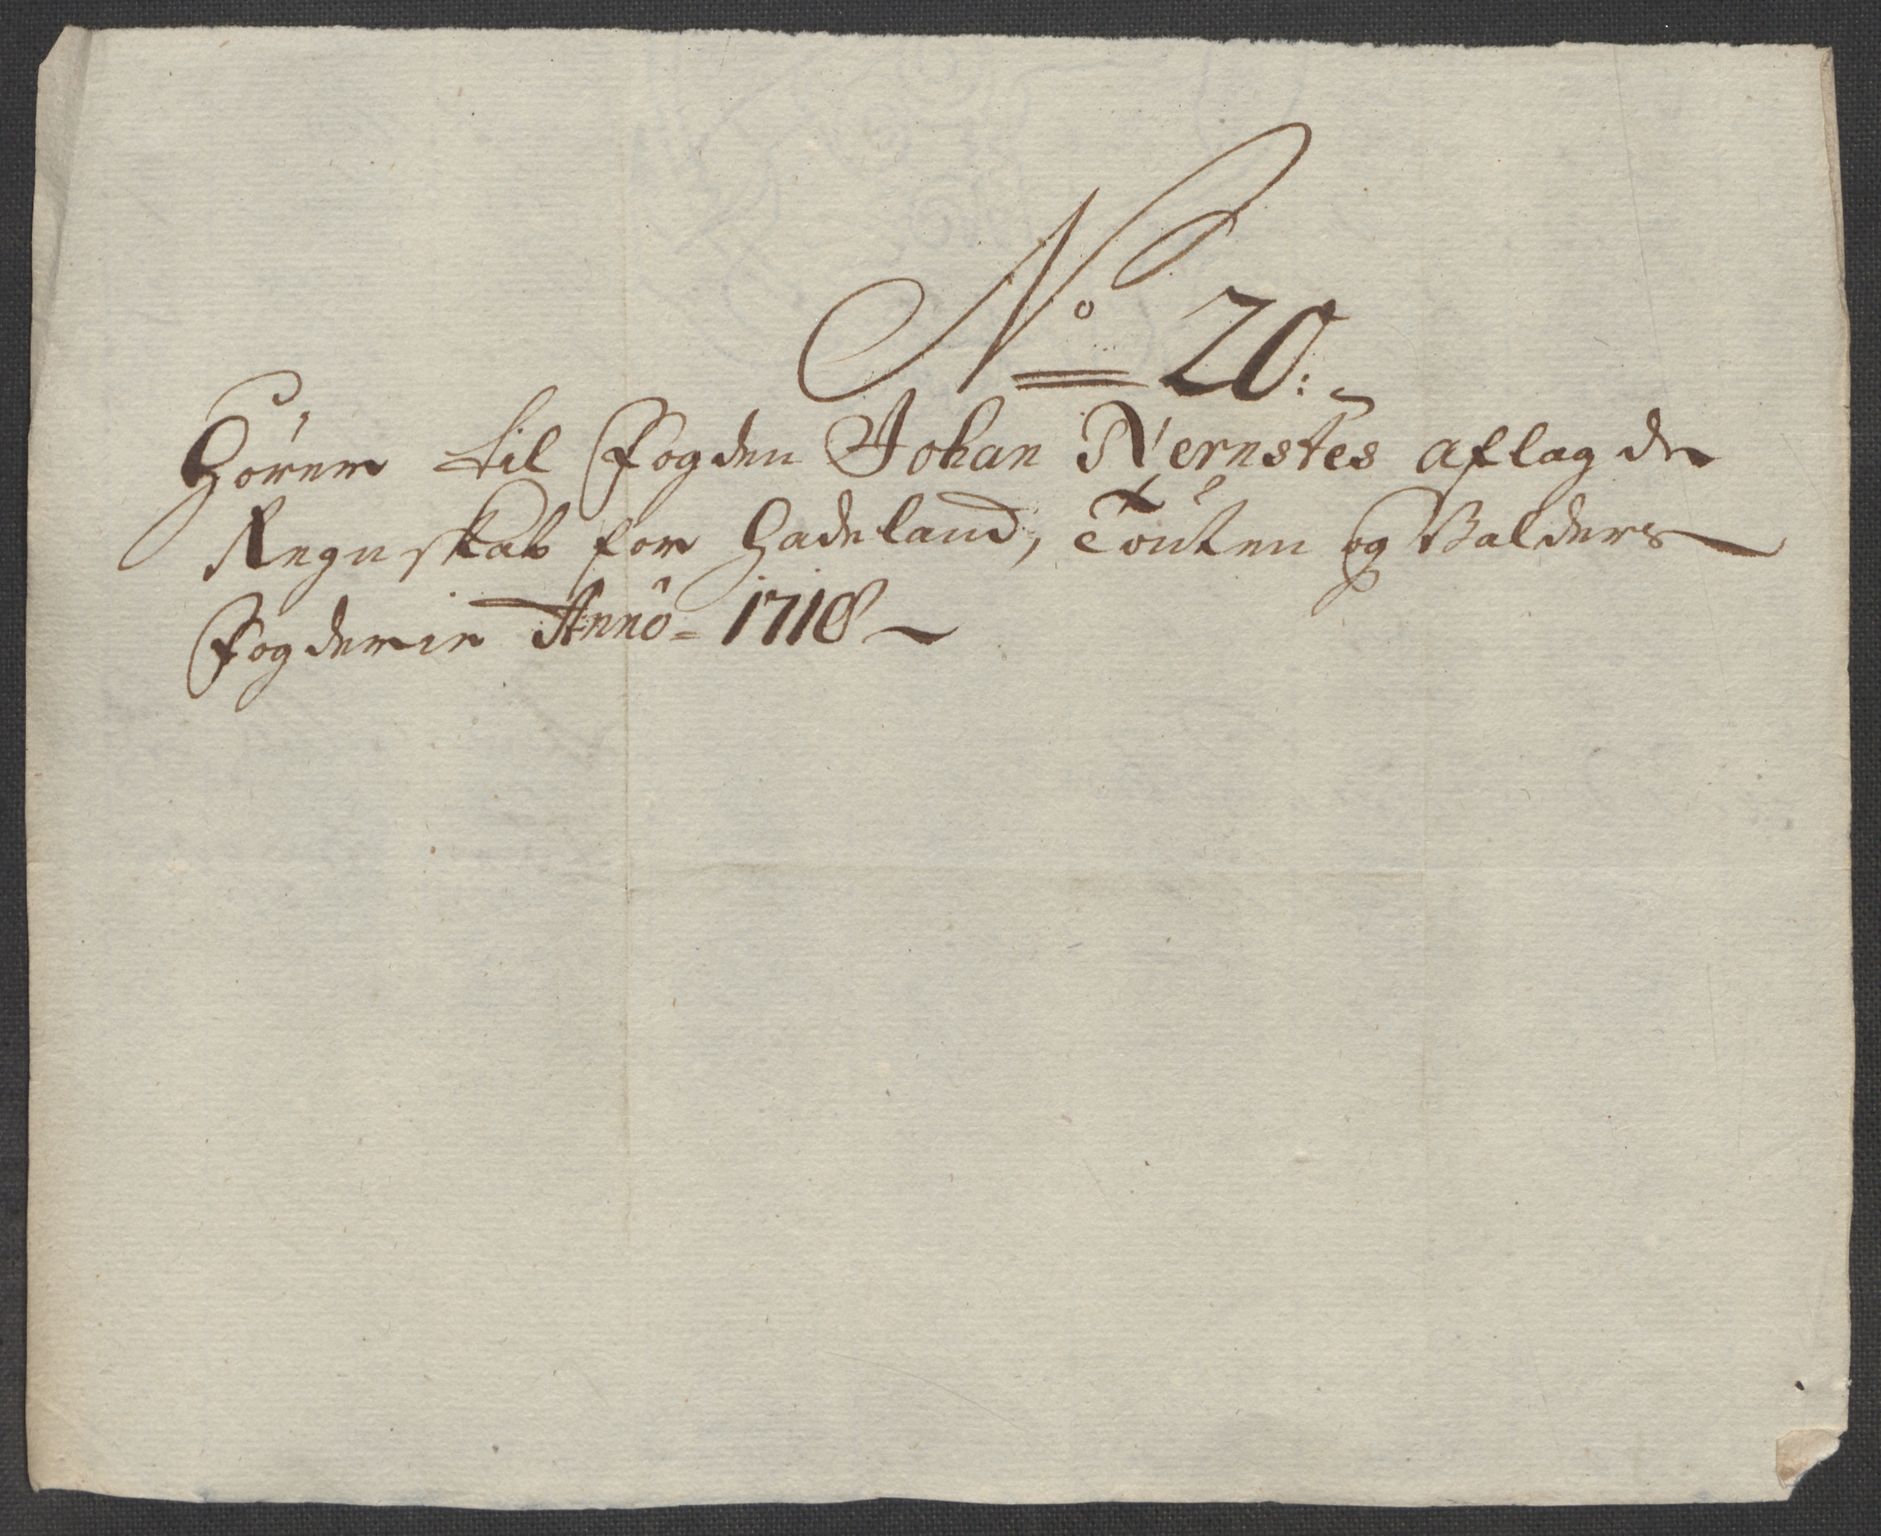 No 20:
Hører til Fogden Johan Nernstes aflagde
Regnskab for Hadeland, Touten og Valders
Fogderie Anno 1718